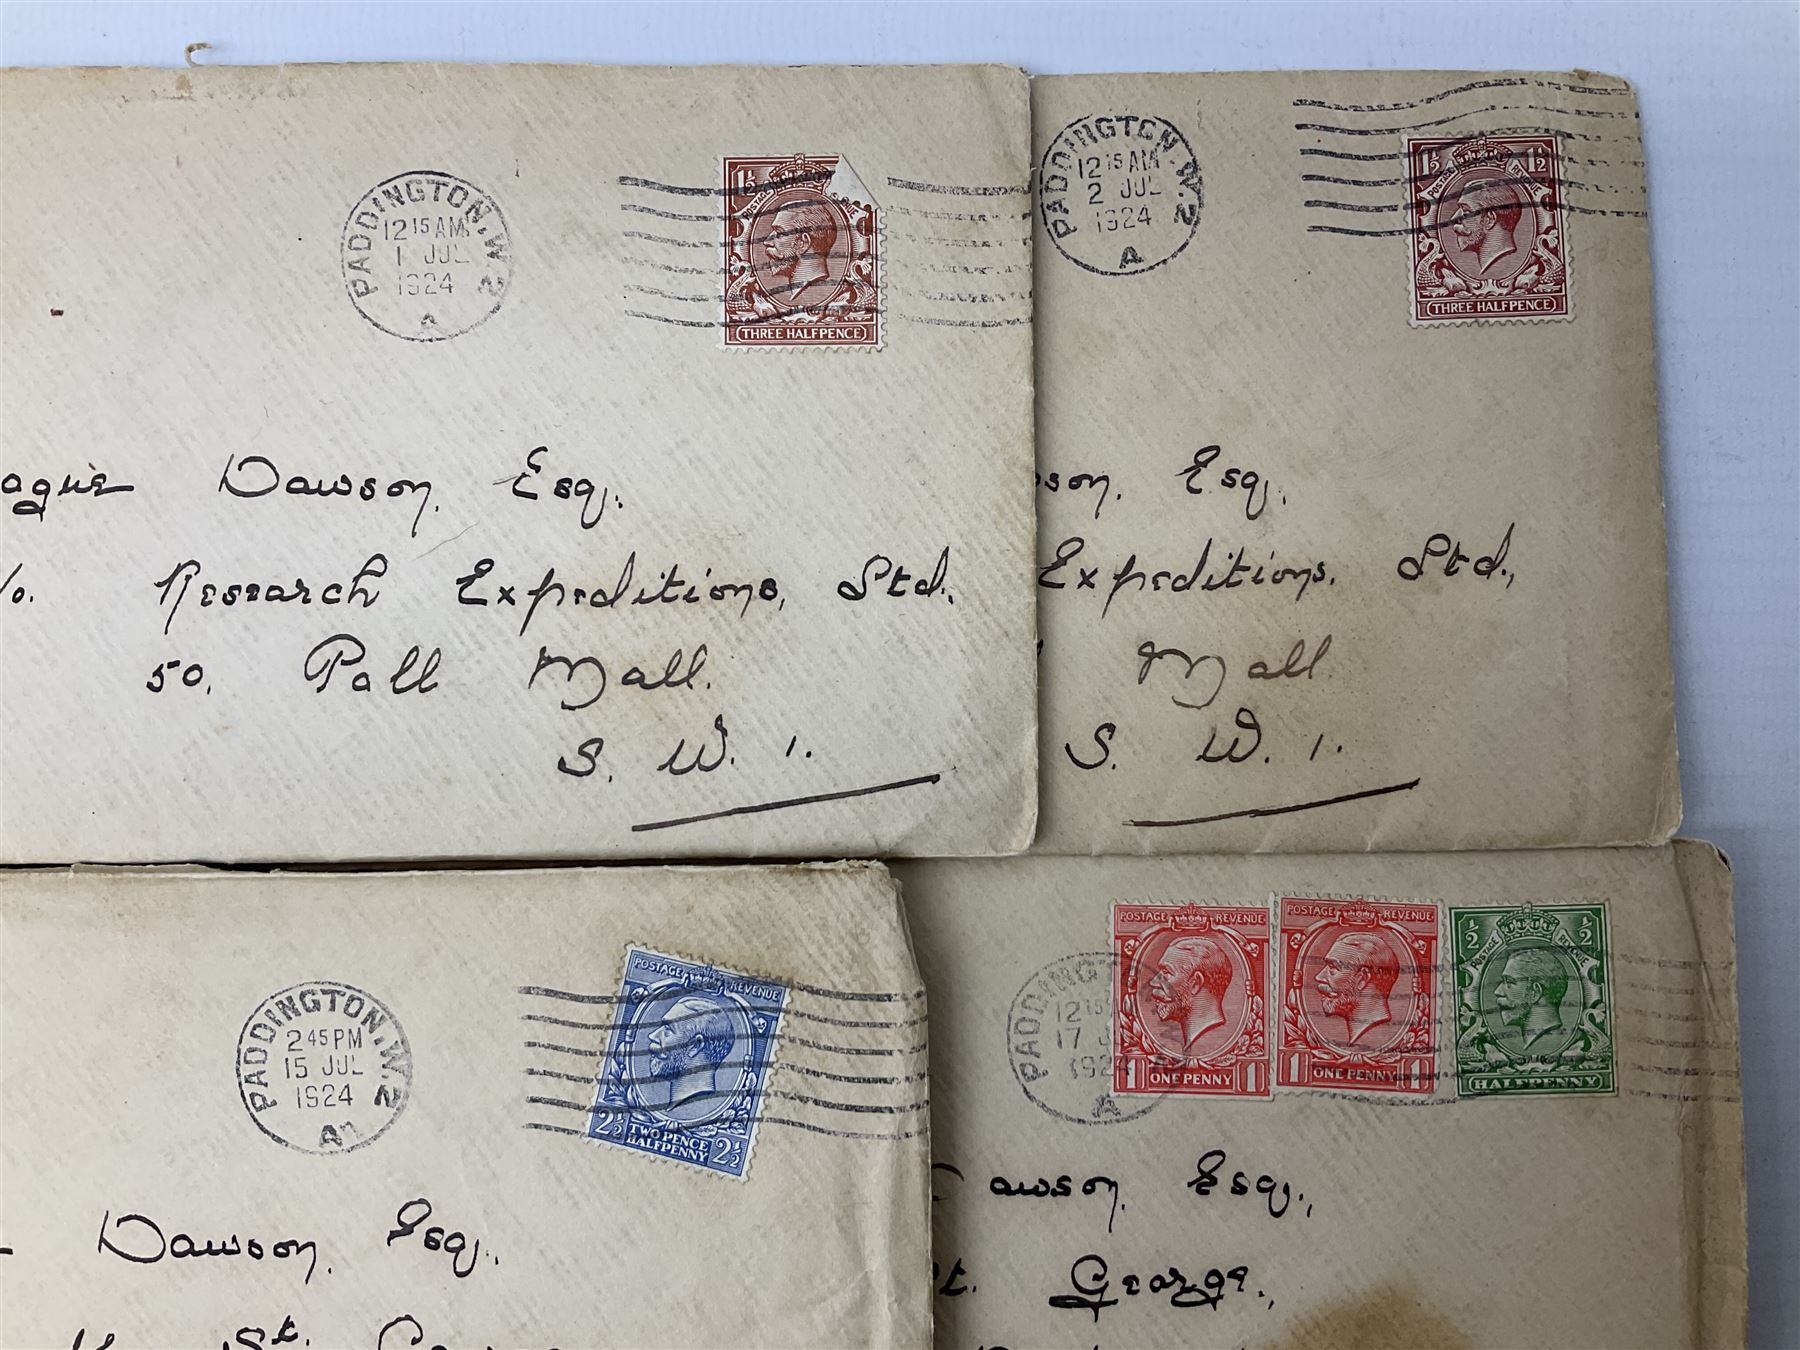 PADDINGTON. W. 2
12 15 AM
1 JUL
1924
A
1½
POSTAGE
THREE HALFPENCE
Dawson, Esq.
Research Expeditions, Ltd.,
50, Pall Mall.
S. W. 1.
PADDINGTON. W. 2
12 15 AM
2 JUL
1924
A
1½ 1½
POSTAGE REVENUE
THREE HALFPENCE
Esq.,
Expeditions, Ltd.,
Mall
S. W. 1.
PADDINGTON. W. 2
2 45 PM
15 JUL
1924
POSTAGE REVENUE
2½ TWO PENCE HALFPENNY 2½
Dawson, Esq.,
St.
PADDINGTON
12 15
17
1924
A
POSTAGE REVENUE
1 ONE PENNY 1
POSTAGE REVENUE
1 ONE PENNY
½ ½
POSTAGE REVENUE
HALFPENNY
Esq.,
George,